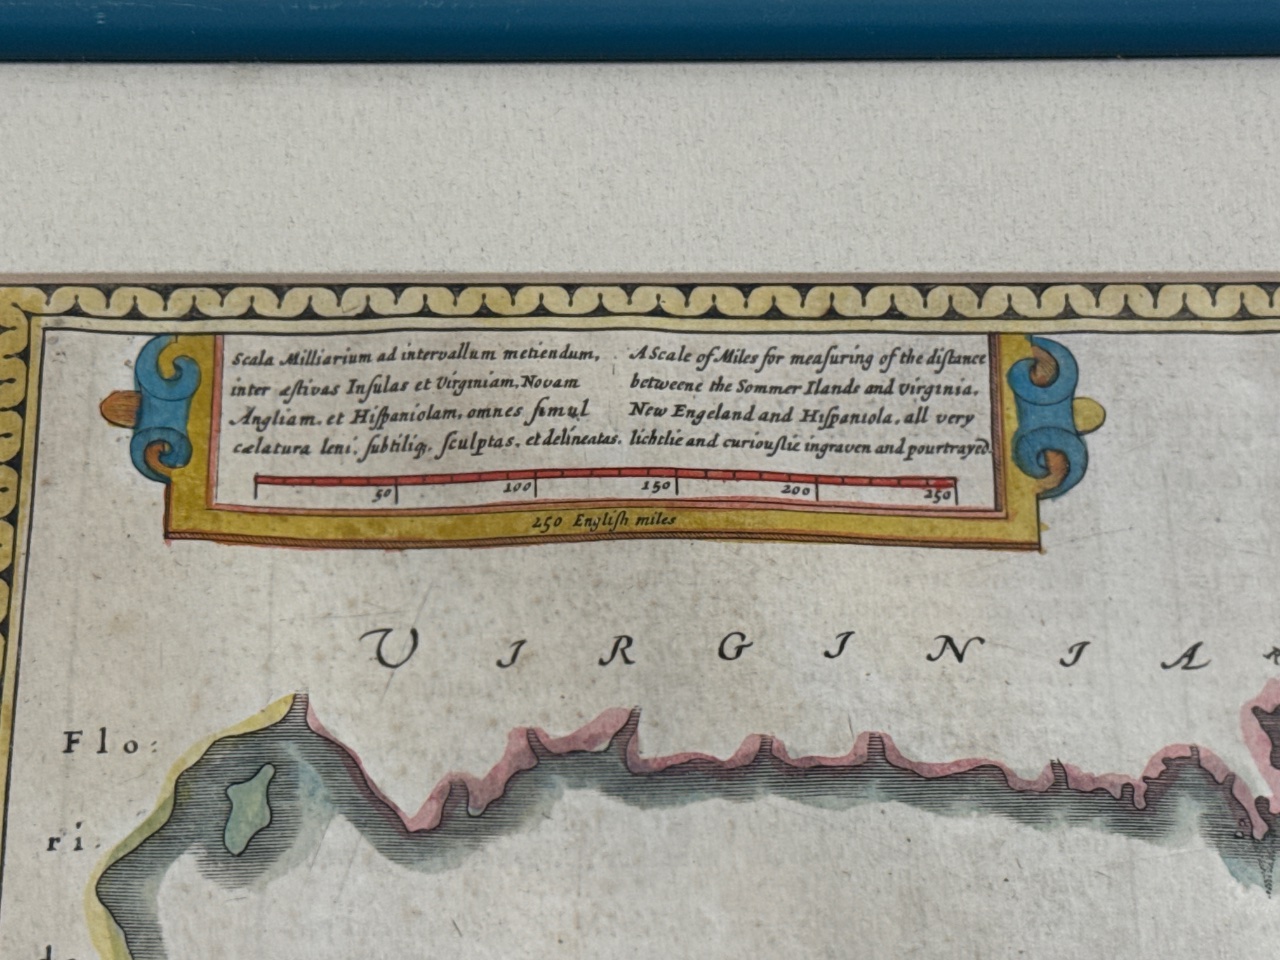 Scala Milliarium ad intervallum metiendum,
inter æstivas Inſulas et Virginiam, Novam
Angliam, et Hiſpaniolam, omnes ſimul
cælatura leni, ſubtiliq;, ſculptas, et delineatas.
A Scale of Miles for meaſuring of the diſtance
betweene the Sommer Ilands and Virginia,
New Engeland and Hiſpaniola, all very
lichtlie and curiouſlie ingraven and pourtrayed.
50 100 150 200 250
250 Engliſh miles
VIRGINIA
Flo:
ri: